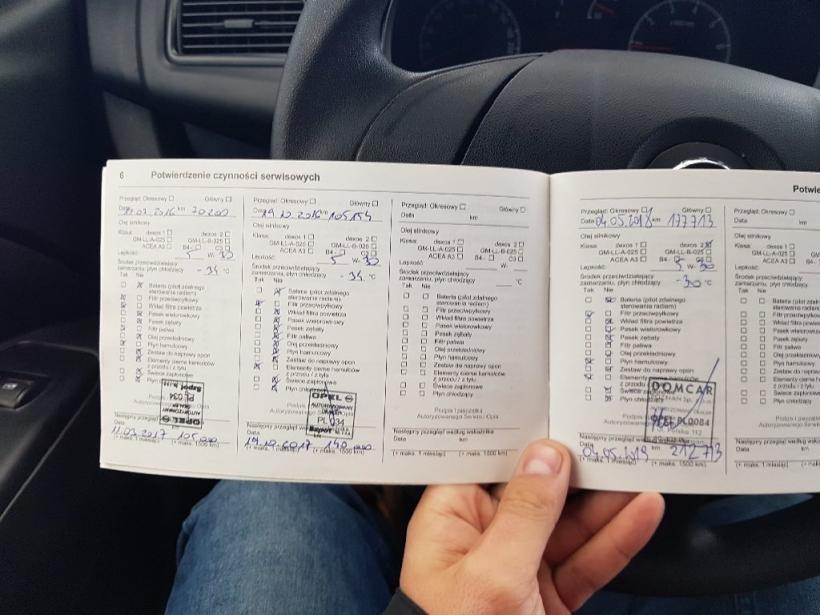 6 Potwierdzenie czynności serwisowych
Przegląd: Okresowy ☐ Główny ☐
2016 km 70 200
Olej silnikowy
Klasa: dexos 1 ☐ dexos 2 ☐
GM-LL-A-025 ☐ GM-LL-B-025 ☐
ACEA A3 ☐ B4 - ☐ C3 ☐
Lepkość: 5 W- 30
Środek przeciwdziałający
zamarzaniu, płyn chłodzący -34 °C
Tak Nie
Bateria (pilot zdalnego
sterowania radiem)
Filtr przeciwpyłkowy
Wkład filtra powietrza
Pasek wielorowkowy
Pasek zębaty
Filtr paliwa
Olej przekładniowy
Płyn hamulcowy
Zestaw do naprawy opon
Elementy cierne hamulców
z przodu / z tyłu
Świece zapłonowe
OPEL
PL 034
Następny przegląd
Data
11.03.2017 105 000
(+ maks. 1 miesiąc) (+ maks. 1500 km)
Przegląd: Okresowy ☐ Główny ☐
Data 19.10.2016 km 105 154
Olej silnikowy
Klasa: dexos 1 ☐ dexos 2 ☐
GM-LL-A-025 ☐ GM-LL-B-025 ☐
ACEA A3 ☐ B4 - ☐ C3
Lepkość: 5 W- 30
Środek przeciwdziałający
zamarzaniu, płyn chłodzący -34 °C
Tak Nie
Bateria (pilot zdalnego
sterowania radiem)
Filtr przeciwpyłkowy
Wkład filtra powietrza
Pasek wielorowkowy
Pasek zębaty
Filtr paliwa
Olej przekładniowy
Płyn hamulcowy
Zestaw do naprawy opon
Elementy cierne hamulców
z przodu / z tyłu
Świece zapłonowe
Płyn chłodzący
OPEL
PL 034
Następny przegląd według wskaźnika
Data km
140 000
(+ maks. 1 miesiąc) (+ maks. 1500 km)
Przegląd: Okresowy ☐ Główny ☐
Data km
Olej silnikowy
Klasa: dexos 1 ☐ dexos 2 ☐
GM-LL-A-025 ☐ GM-LL-B-025 ☐
ACEA A3 ☐ B4 - ☐ C3 ☐
Lepkość: W-
Środek przeciwdziałający
zamarzaniu, płyn chłodzący °C
Tak Nie
Bateria (pilot zdalnego
sterowania radiem)
Filtr przeciwpyłkowy
Wkład filtra powietrza
Pasek wielorowkowy
Pasek zębaty
Filtr paliwa
Olej przekładniowy
Płyn hamulcowy
Zestaw do naprawy opon
Elementy cierne hamulców
z przodu / z tyłu
Świece zapłonowe
Płyn chłodzący
Podpis i pieczątka
Autoryzowanego Serwisu Opla
Następny przegląd według wskaźnika
Data km
(+ maks. 1 miesiąc) (+ maks. 1500 km)
Przegląd: Okresowy ☐ Główny ☐
Data 04.05.2018 km 177713
Olej silnikowy
Klasa: dexos 1 ☐ dexos 2
GM-LL-A-025 ☐ GM-LL-B-025 ☐
ACEA A3 ☐ B4 - ☐ C3 ☐
Lepkość: 5 W- 30
Środek przeciwdziałający
zamarzaniu, płyn chłodzący -30 °C
Tak Nie
Bateria (pilot zdalnego
sterowania radiem)
Filtr przeciwpyłkowy
Wkład filtra powietrza
Pasek wielorowkowy
Pasek zębaty
Filtr paliwa
Olej przekładniowy
Płyn hamulcowy
Zestaw do naprawy opon
Elementy
z przodu
Świece zapłonowe
Płyn chłodzący
DOMCAR
Następny przegląd według wskaźnika
Data 04.05.2019 km 212 713
(+ maks. 1 miesiąc) (+ maks. 1500 km)
Przegląd: Okresowy ☐
Data
Olej silnikowy
Klasa: dexos 1 ☐
GM-LL-A-025 ☐
ACEA A3 ☐
Lepkość:
Środek przeciwdziałający
zamarzaniu, płyn chłodzący
Tak Nie
Bateria (pilot zdalnego
sterowania radiem)
Filtr przeciwpyłkowy
Wkład filtra powietrza
Pasek wielorowkowy
Pasek zębaty
Filtr paliwa
Olej przekładniowy
Płyn hamulcowy
Zestaw do naprawy
Elementy cierne
z przodu / z tyłu
Świece zapłonowe
Płyn chłodzący
Następny przegląd
Data
(+ maks. 1 miesiąc)